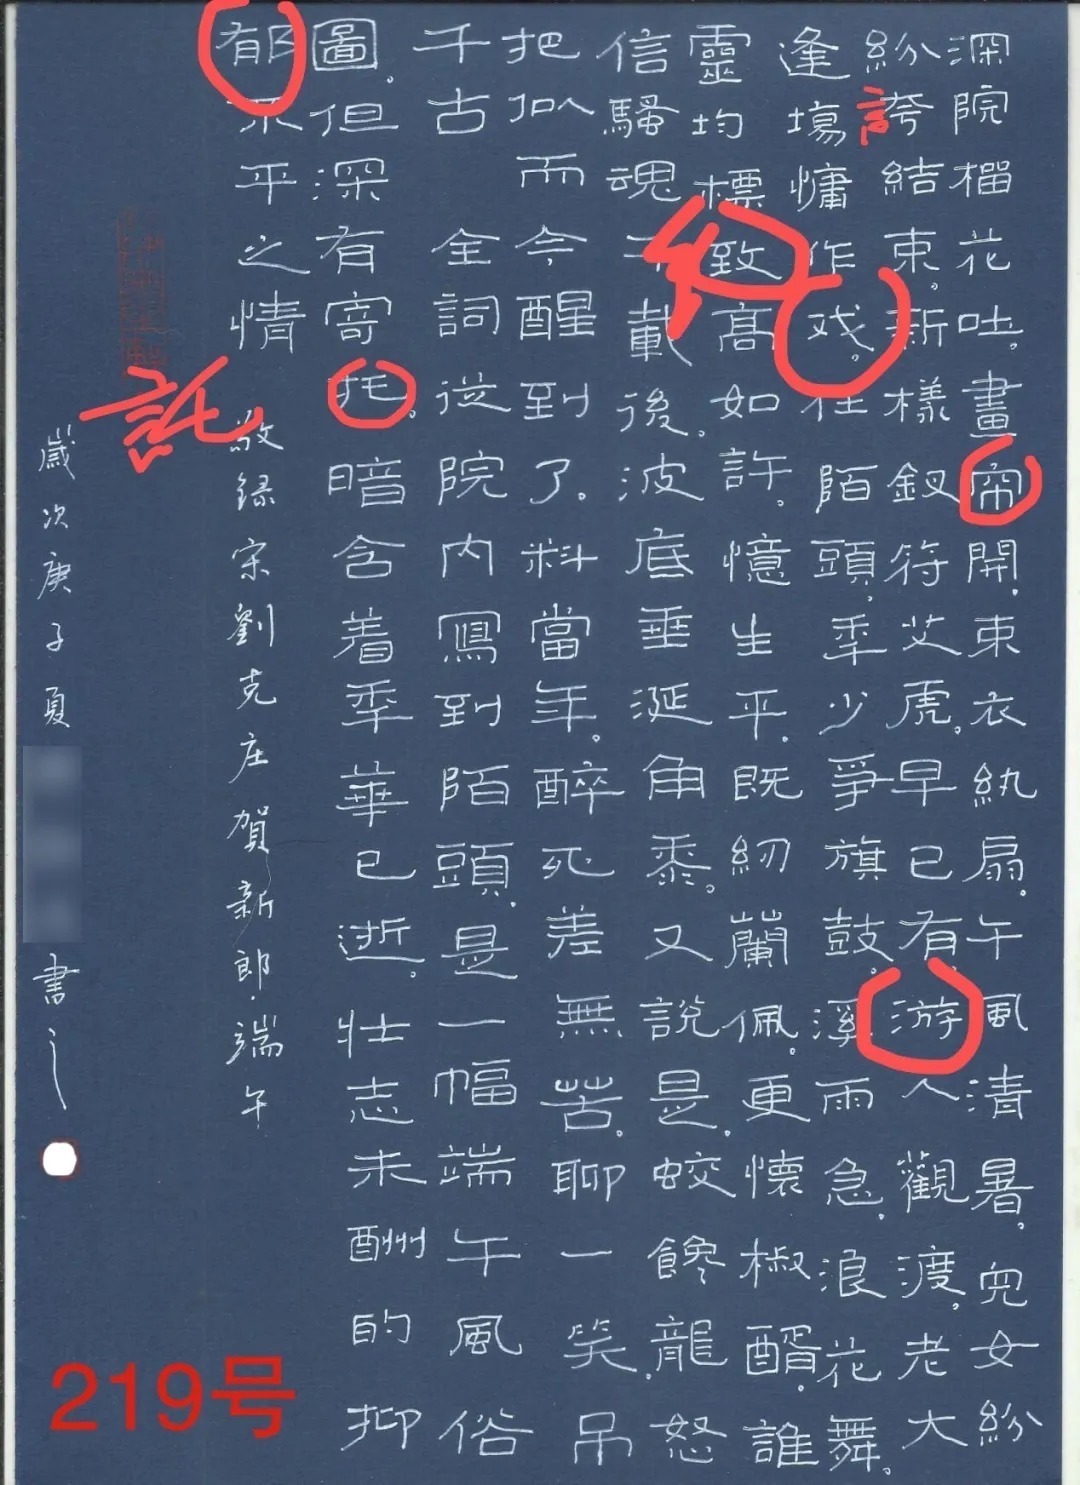 深院榴花吐。畫帘開。束衣紈扇。午風清暑。兒女紛
紛夸結束。新樣釵符艾虎。早已有游人觀渡。老大
逢場慵作戏。任陌頭。秊少爭旗鼓。溪雨急。浪花舞。
靈均標致高如許。憶生平。既紉蘭佩。更懷椒醑。誰
信騷魂千載後。波底垂涎角黍。又說是。蛟饞龍怒
把似而今醒到了。料當年。醉死差無苦。聊一笑。吊
千古 全詞從院内寫到陌頭。是一幅端午風俗
圖。但深有寄托。暗含着秊華已逝。壯志未酬的抑
郁不平之情
敬録宋劉克庄賀新郎·端午
歲次庚子夏
書之
訁
託
219号